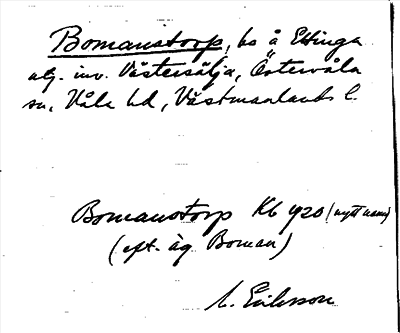 Bomanstorp, bs å Ettinga
utj. inv. Västersälja, Östervåla
sn, Våla hd, Västmanlands l.
Bomanstorp Kb 1920 (nytt namn)
(eft. äg. Boman)
Eriksson